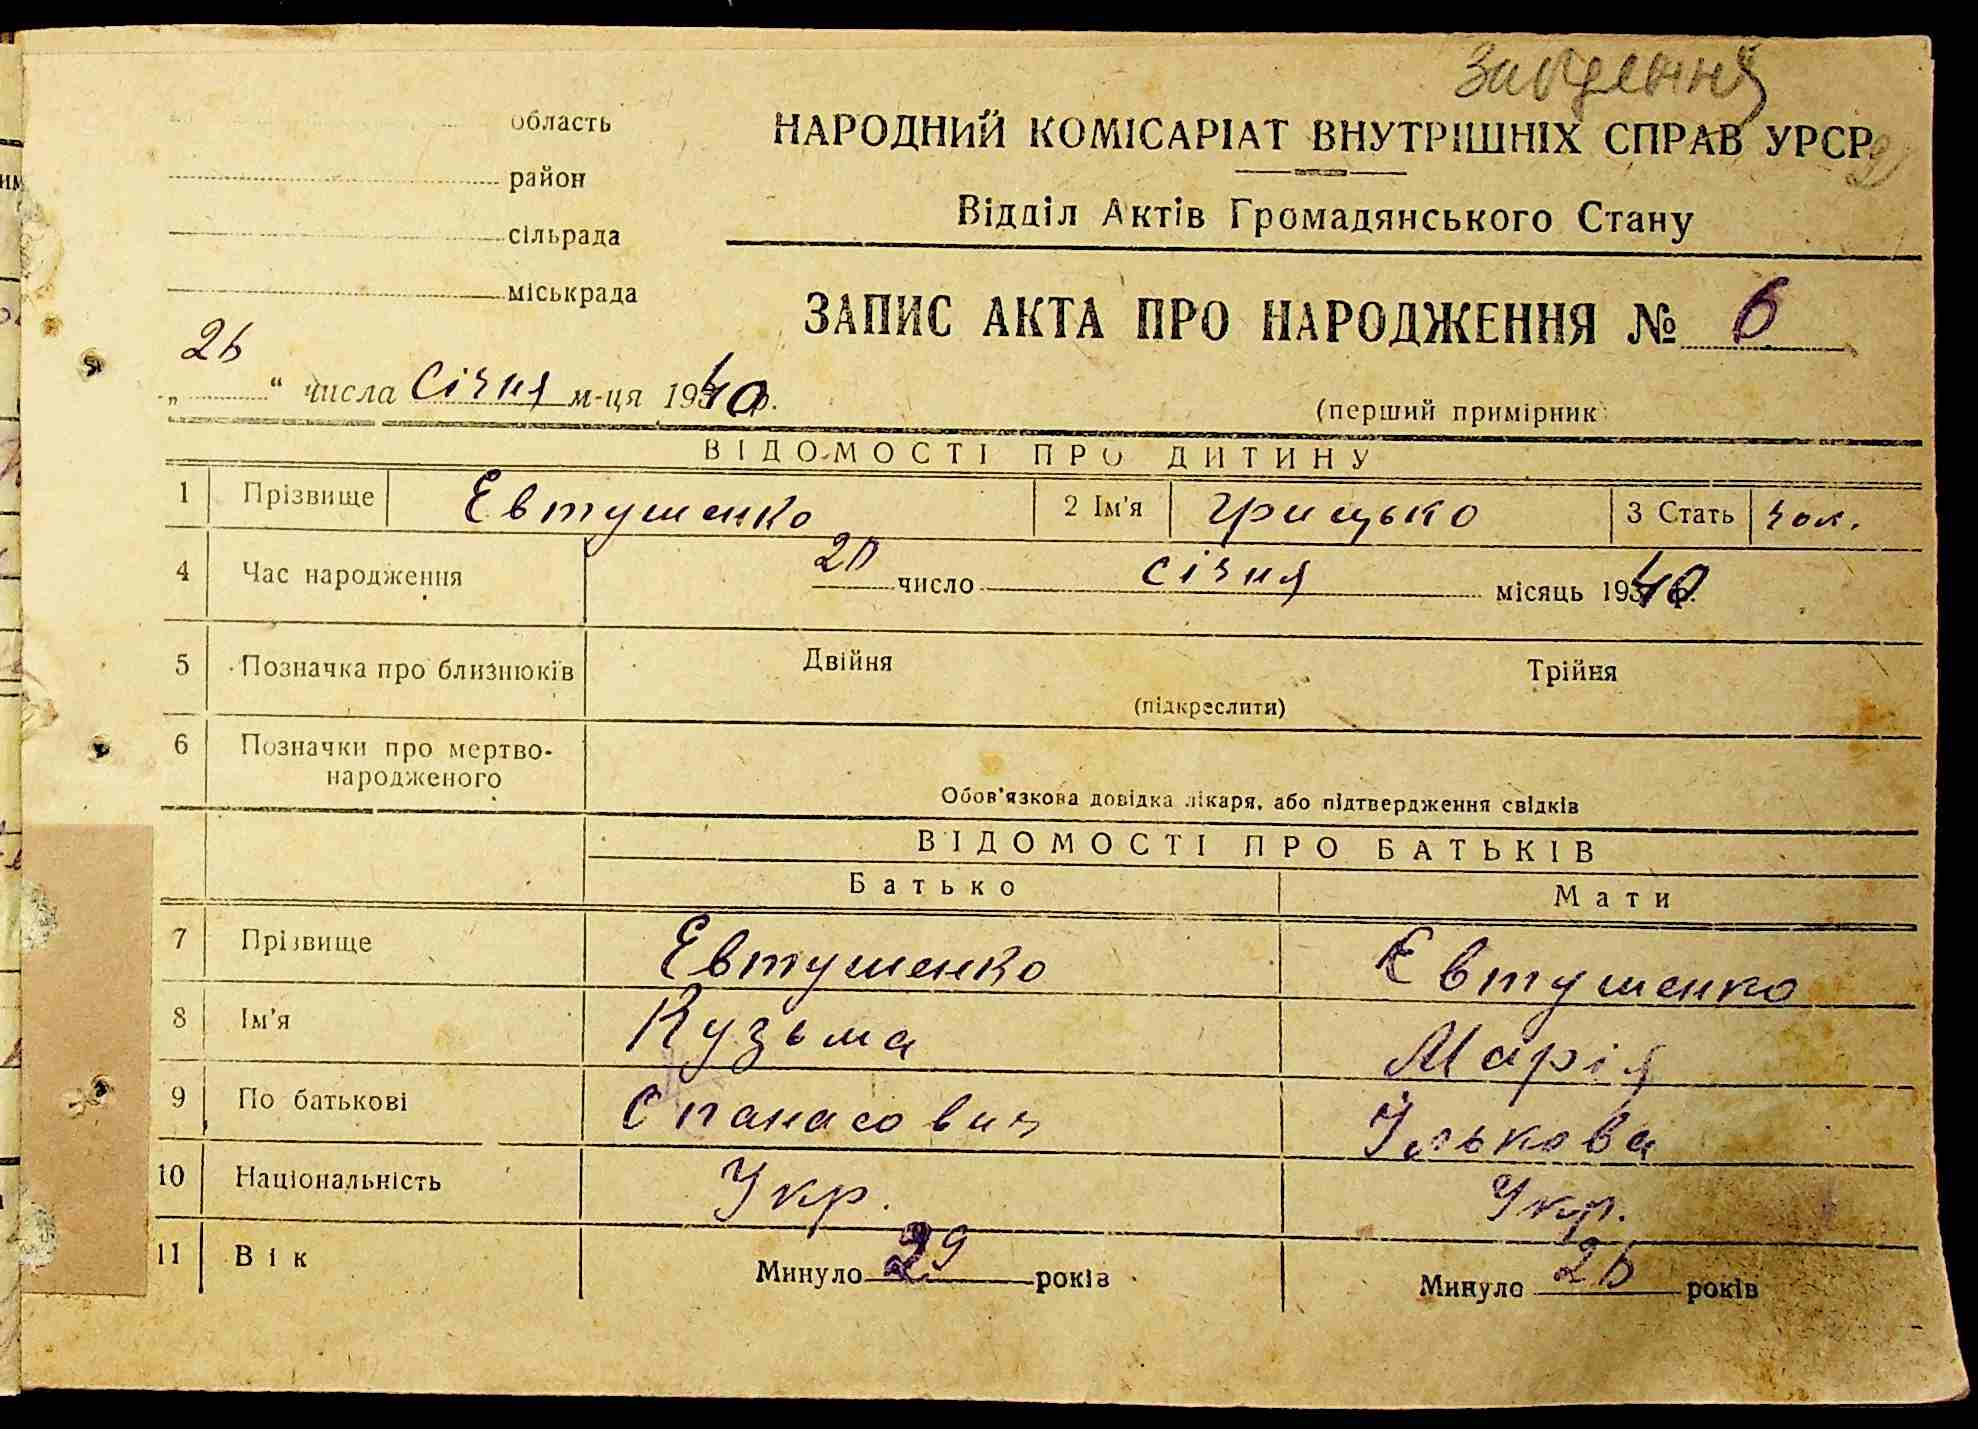 область
НАРОДНИЙ КОМІСАРІАТ ВНУТРІШНІХ СПРАВ УРСР
район
Відділ Актів Громадянського Стану
сільрада
міськрада
ЗАПИС АКТА ПРО НАРОДЖЕННЯ № 6
„26“ числа Січня м-ця 1940 р.
(перший примірник)
ВІДОМОСТІ ПРО ДИТИНУ
1 Прізвище Евтушенко 2 Ім'я Грицько 3 Стать чол.
4 Час народження 20 число січня місяць 1940 р.
5 Позначка про близнюків Двійня Трійня
(підкреслити)
6 Позначки про мертво-
народженого
Обов'язкова довідка лікаря, або підтвердження свідків
ВІДОМОСТІ ПРО БАТЬКІВ
Батько Мати
7 Прізвище Евтушенко Евтушенко
8 Ім'я Кузьма Марія
9 По батькові Опанасович Ількова
10 Національність Укр. Укр.
11 Вік Минуло 29 років Минуло 26 років